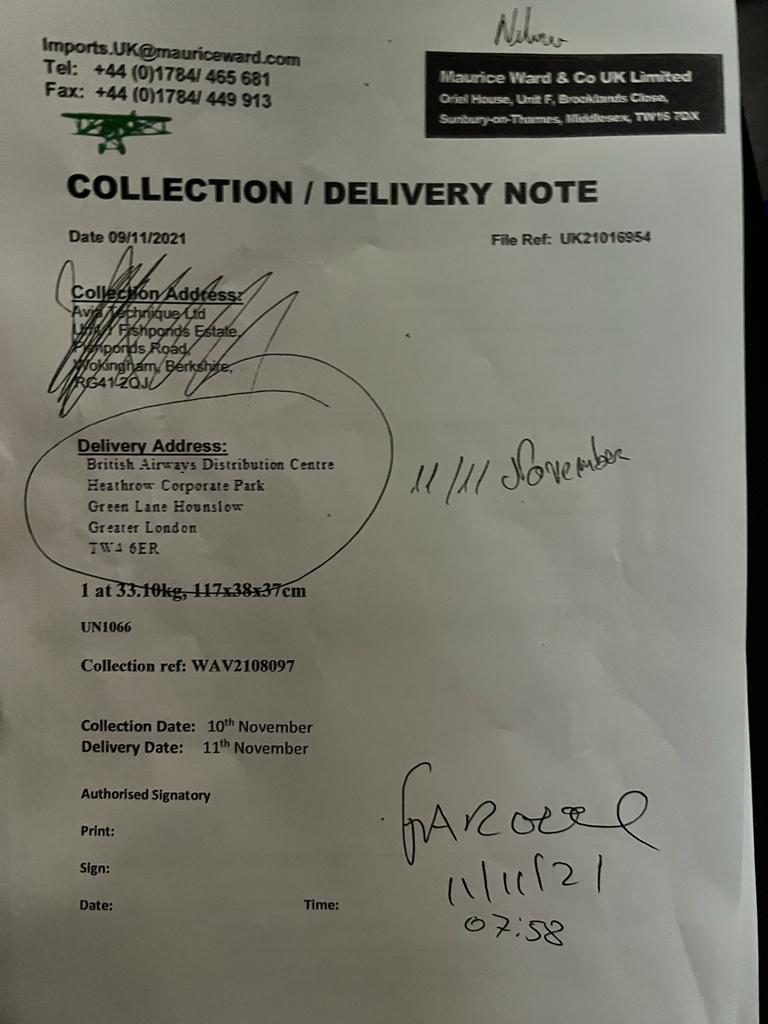 Imports.UK@mauriceward.com
Tel: +44 (0)1784/ 465 681
Fax: +44 (0)1784/ 449 913
Maurice Ward & Co UK Limited
Oriel House, Unit F, Brooklands Close,
Sunbury-on-Thames, Middlesex, TW16 7DX
COLLECTION / DELIVERY NOTE
Date 09/11/2021
File Ref: UK21016954
Collection Address:
Avia Technique Ltd
Unit 1 Fishponds Estate,
Fishponds Road,
Wokingham, Berkshire,
RG41 2QJ
Delivery Address:
British Airways Distribution Centre
Heathrow Corporate Park
Green Lane Hounslow
Greater London
TW4 6ER
11/11 November
1 at 33.10kg, 117x38x37cm
UN1066
Collection ref: WAV2108097
Collection Date: 10th November
Delivery Date: 11th November
Authorised Signatory
Print:
Sign:
11/11/21
Date:
Time:
07:58